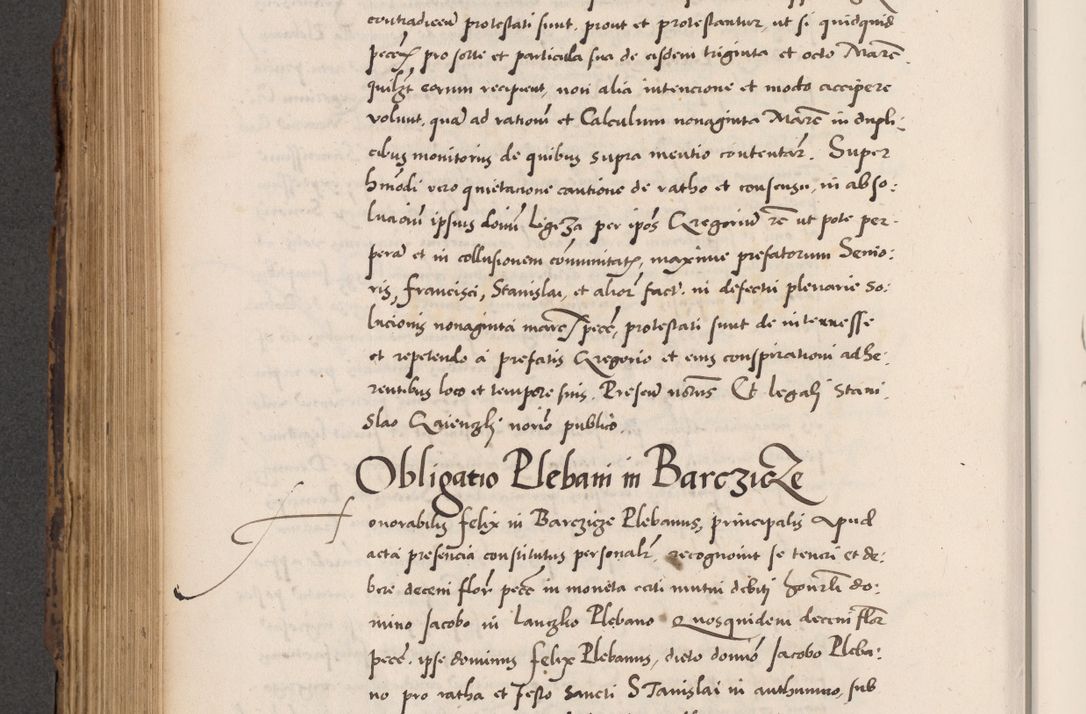 contradicend protestati sunt, prout et protestantur, ut si quidquid
pecc̃ pro sorte et particula sua de eisdem triginta et octo Marc̃
quilzt eorum recipient, non alia intencione et modo accipere
volunt, quam ad rationem et Calculum nonaginta Marc̃ in dupli-
cibus monitoriis de quibus supra mentio contentar̃. Super
hmodi vero quietacione cautione de ratho et consensu, in abso:
lucionem ipsius domini Ligenza per ipos Gregorium rc̃ ut pote per-
peram et in collusionem communitatis, maxime prefatorum Senio:
ris, Francisci, Stanislai, et alior̃ fact. in defectu plenarie so:
lucionis nonaginta marc̃ pecc̃, protestati sunt de interesse
et repetendo a prefatis Gregorio et eius conspirationi adhe:
rentibus loco et tempore suis. Presen nobis Et legali Stani-
slao notio publico.
Obligatio Plebani in Barczicze
Honorabilis Felix in Barczicze Plebanus, principalis Apud
acta presencia constitutus personalr recognovit se teneri et de:
bere decem flor̃ pecc̃ in moneta mutui debiti honrli do:
mino Jacobo in Lanczko Plebano Quosquidem decem flor̃
pecc̃. ipse dominus Felix Plebanus, dicto domino Jacobo Pleba:
no pro ratha et Festo Sancti Stanislai in authumno, sub